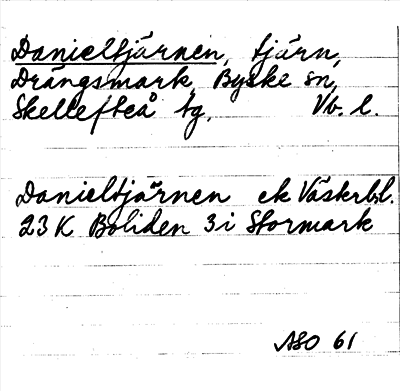 Danieltjärnen, tjärn,
Drängsmark, Byske sn,
Skellefteå tg, Vb. l.
Danieltjärnen ek Västerb.l.
23 K Boliden 3 i Stormark
ASO 61